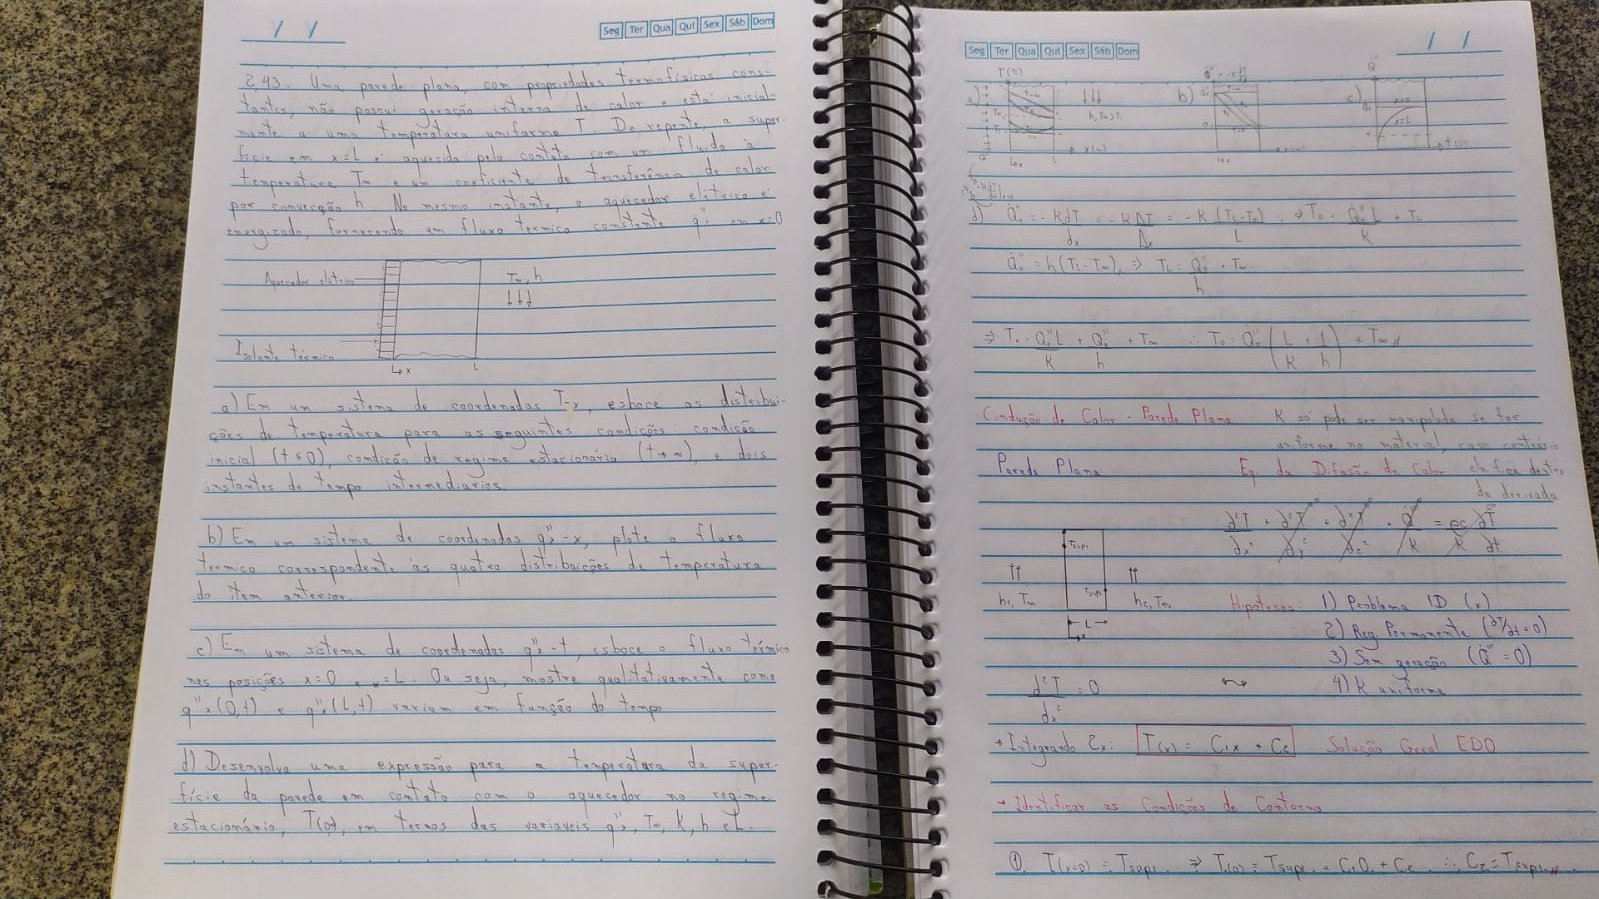 / /
Seg Ter Qua Qui Sex Sáb Dom
2.43. Uma parede plana, com propriedades termofísicas cons-
tantes, não possui geração interna de calor e está inicial-
mente a uma temperatura uniforme T. De repente, a super-
fície em x=L é aquecida pelo contato com um fluido à
temperatura T∞ e um coeficiente de transferência de calor
por convecção h. No mesmo instante, o aquecedor elétrico é
energizado, fornecendo um fluxo térmico constante q̇"₀ em x=0
Aquecedor elétrico
T∞, h
Isolante térmico
x
L
a) Em um sistema de coordenadas T-x, esboce as distribui-
ções de temperatura para as seguintes condições: condição
inicial (t≤0), condição de regime estacionário (t→∞), e dois
instantes de tempo intermediarios.
b) Em um sistema de coordenadas q"x-x, plote o fluxo
térmico correspondente às quatro distribuições de temperatura
do item anterior.
c) Em um sistema de coordenadas q"x-t, esboce o fluxo térmico
nas posições x=0 e x=L. Ou seja, mostre qualitativamente como
q"x(0,t) e q"x(L,t) variam em função do tempo
d) Desenvolva uma expressão para a temperatura da super-
fície da parede em contato com o aquecedor no regime
estacionário, T(0,), em termos das variaveis q"₀, T∞, K, h e L.
Seg Ter Qua Qui Sex Sáb Dom
/ /
a)
b)
c)
L
d) Q̇"₀ = -K dT/dx = -K ΔT/Δx = -K (TL-T0)/L, ⇒ T0 = Q̇"₀L/K + TL
Q̇"₀ = h(TL-T∞), ⇒ TL = Q̇"₀/h + T∞
⇒ T0 = Q̇"₀L/K + Q̇"₀/h + T∞ ∴ T0 = Q̇"₀ (L/K + 1/h) + T∞ //
Condução de Calor - Parede Plana K só pode ser manipulada se for
uniforme no material, caso contrário
Parede Plana Eq. da Difusão de Calor ela fica dentro
da derivada
∂²T/∂x² + ∂²T/∂y² + ∂²T/∂z² + Q̇/K = ρc/K ∂T/∂t
h1, T∞ L h2, T∞2
Hipóteses: 1) Problema 1D (x)
2) Reg Permanente (∂T/∂t=0)
3) Sem geração (Q̇"'=0)
d²T/dx² = 0 4) K uniforme
→ Integrando 2x: T(x) = C1x + C2 Solução Geral EDO
→ Identificar as Condições de Contorno
①. T(x=0) = Tsup1 ⇒ T(0) = Tsup1 = C1.0 + C2 ∴ C2 = Tsup1 //